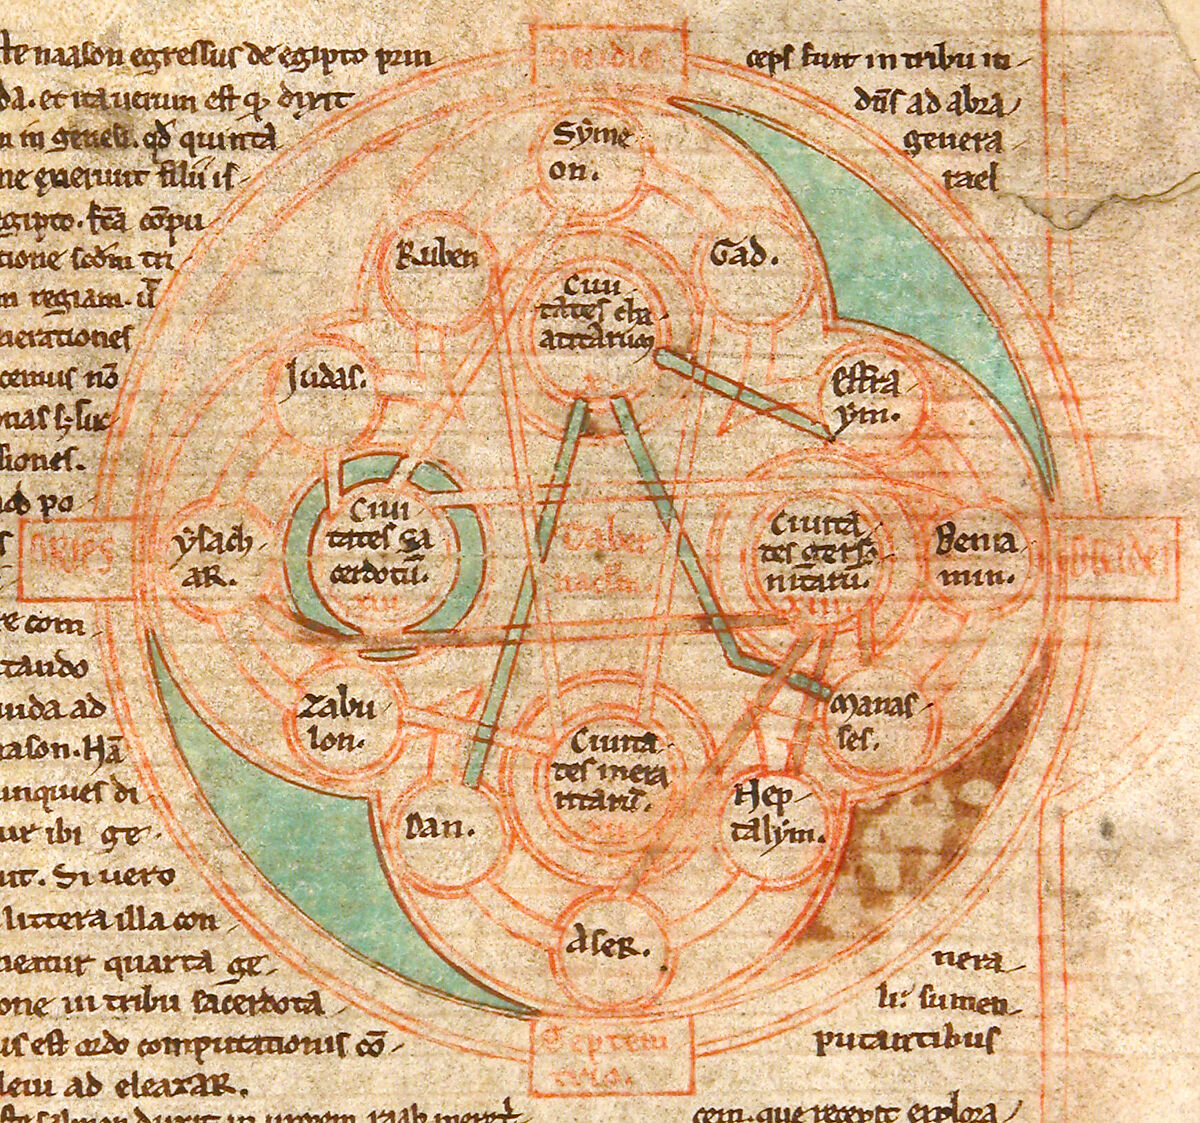 naason egressus de egipto prin
da. et ita uerum est qđ dixit
in genesi. qđ quinta
ne exierunt filii is
egipto. scđa cōpu
tione scđm tri
m regiam.
nerationes
cemus nō
siones.
iob po
re com
tando
uida ad
nason. Hā
unquies di
ur ibi ge
uit. Si uero
littera illa con
neatur quarta ge
one in tribu sacerdota
us est ordo computationis cō
leui ad eleazaR.
ceps fuit in tribu iu
dn̄s ad abra
genera
rael
Meridies
Syme
on.
Ruben
Gad.
Ciui
tates cha
atitarum
Judas.
effra
ym.
Ciui
tates sa
cerdotū.
Taber
naclm
Ciuita
tes gerso
nitarū.
Benia
min.
ysach
aR.
ARIES
Zabu
lon.
Manas
ses.
Ciuita
tes mera
ritarū.
Dan.
Hep
talym.
AseR.
Septem
trio.
nera
li: sumen
putantibus
cem. que recepit explora